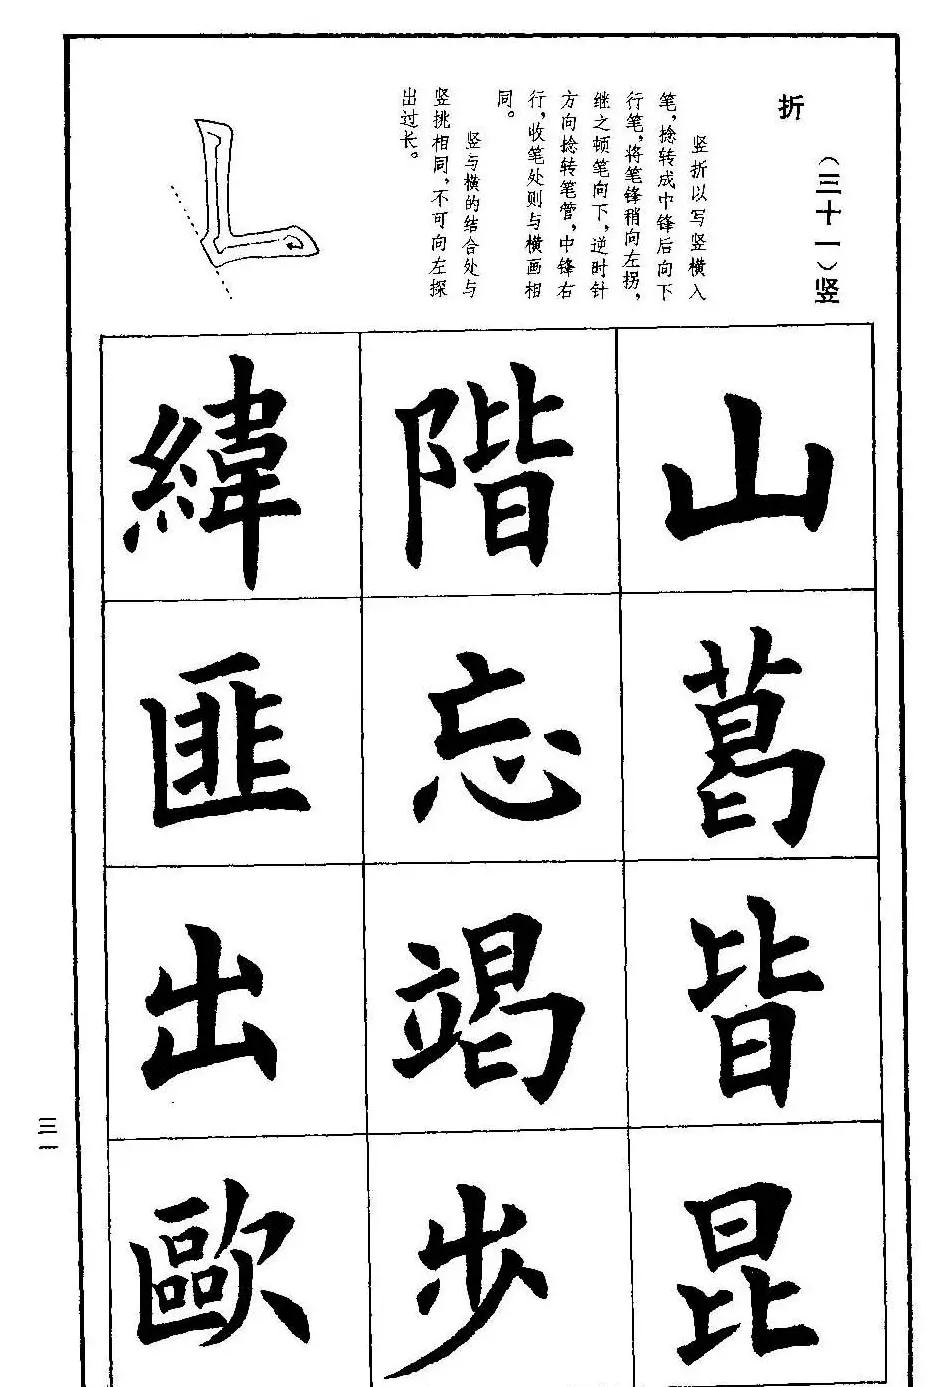 （三十一）竖
折
竖折以写竖横入
笔，捻转成中锋后向下
行笔，将笔锋稍向左拐，
继之顿笔向下，逆时针
方向捻转笔管，中锋右
行，收笔处则与横画相
同。
竖与横的结合处与
竖挑相同，不可向左探
出过长。
山
葛
皆
昆
階
忘
竭
步
緯
匪
出
歐
三一